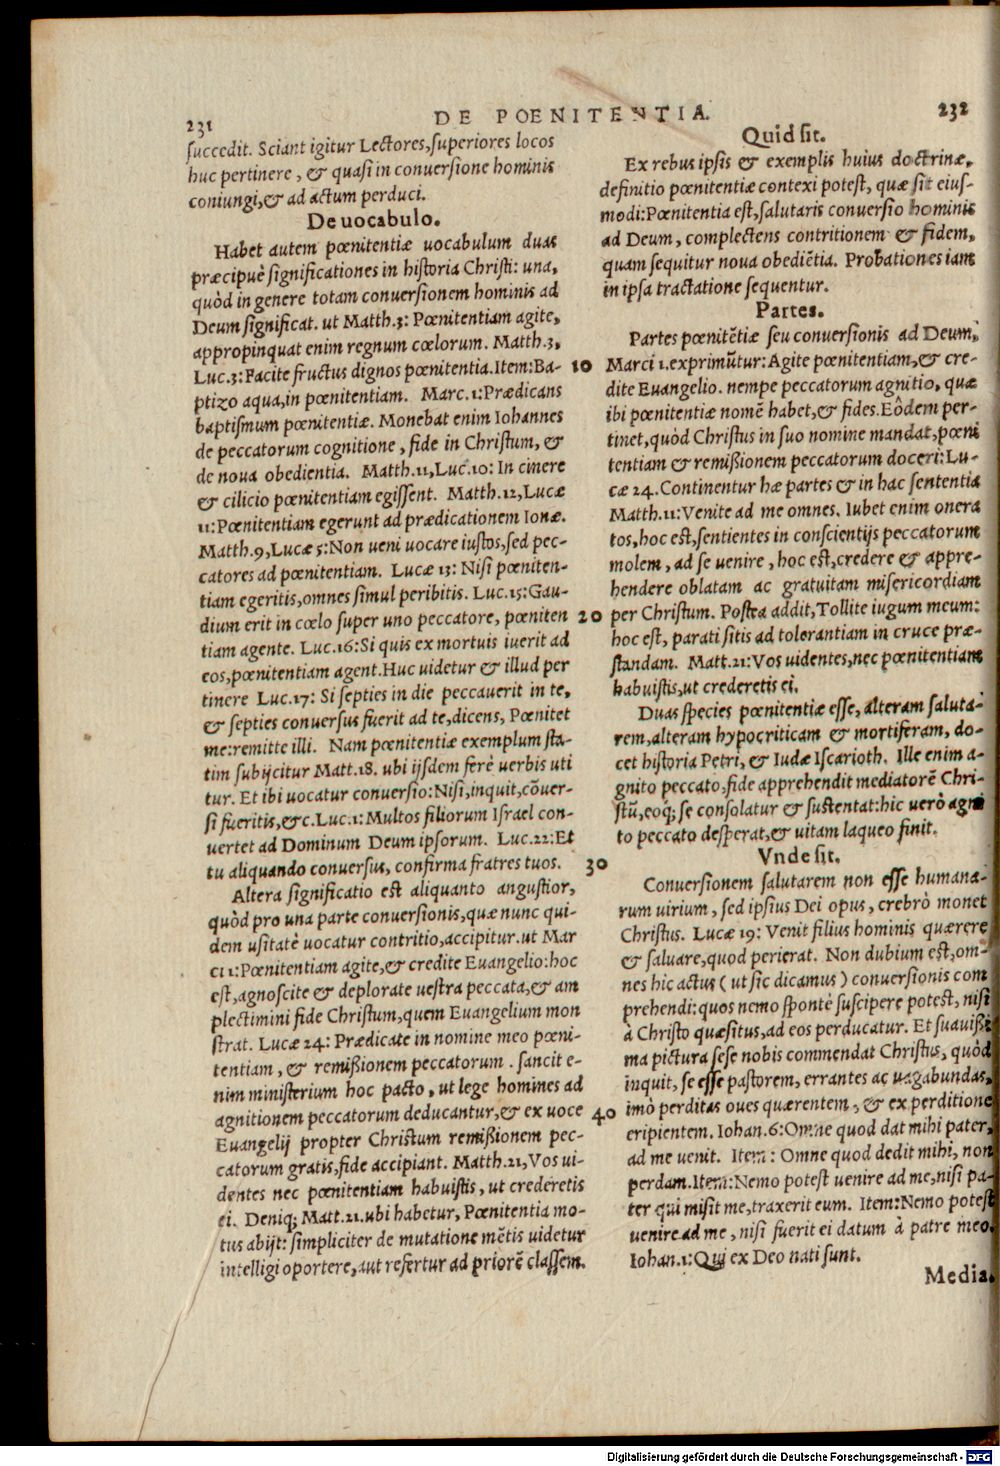 DE POENITENTIA.
231
succedit. Sciant igitur Lectores, superiores locos
huc pertinere, & quasi in conuersione hominis
coniungi, & ad actum perduci.
De uocabulo.
Habet autem pœnitentiæ uocabulum duas
præcipuè significationes in historia Christi: una,
quòd in genere totam conuersionem hominis ad
Deum significat. ut Matth.3: Pœnitentiam agite,
appropinquat enim regnum cœlorum. Matth.3,
Luc.3: Facite fructus dignos pœnitentia. Item: Ba-
ptizo aqua, in pœnitentiam. Marc.1: Prædicans
baptismum pœnitentiæ. Monebat enim Iohannes
de peccatorum cognitione, fide in Christum, &
de noua obedientia. Matth.11, Luc.10: In cinere
& cilicio pœnitentiam egissent. Matth.12, Lucæ
11: Pœnitentiam egerunt ad prædicationem Ionæ.
Matth.9, Lucæ 5: Non ueni uocare iustos, sed pec-
catores ad pœnitentiam. Lucæ 13: Nisi pœniten-
tiam egeritis, omnes simul peribitis. Luc.15: Gau-
dium erit in cœlo super uno peccatore, pœniten
tiam agente. Luc.16: Si quis ex mortuis iuerit ad
eos, pœnitentiam agent. Huc uidetur & illud per
tinere Luc.17: Si septies in die peccauerit in te,
& septies conuersus fuerit ad te, dicens, Pœnitet
me: remitte illi. Nam pœnitentiæ exemplum sta-
tim subijcitur Matt.18. ubi ijsdem ferè uerbis uti
tur. Et ibi uocatur conuersio: Nisi, inquit, cõuer-
si fueritis, &c. Luc.1: Multos filiorum Israel con-
uertet ad Dominum Deum ipsorum. Luc.22: Et
tu aliquando conuersus, confirma fratres tuos.
Altera significatio est aliquanto angustior,
quòd pro una parte conuersionis, quæ nunc qui-
dem usitatè uocatur contritio, accipitur. ut Mar
ci 1: Pœnitentiam agite, & credite Euangelio: hoc
est, agnoscite & deplorate uestra peccata, & am
plectimini fide Christum, quem Euangelium mon
strat. Lucæ 24: Prædicate in nomine meo pœni-
tentiam, & remißionem peccatorum. sancit e-
nim ministerium hoc pacto, ut lege homines ad
agnitionem peccatorum deducantur, & ex uoce
Euangelij propter Christum remißionem pec-
catorum gratis, fide accipiant. Matth.21, Vos ui-
dentes nec pœnitentiam habuistis, ut crederetis
ei. Deniq; Matt.21. ubi habetur, Pœnitentia mo-
tus abijt: simpliciter de mutatione mẽtis uidetur
intelligi oportere, aut refertur ad priorẽ classem.
10
20
30
40
232
Quid sit.
Ex rebus ipsis & exemplis huius doctrinæ,
definitio pœnitentiæ contexi potest, quæ sit eius-
modi: Pœnitentia est, salutaris conuersio hominis
ad Deum, complectens contritionem & fidem,
quam sequitur noua obediẽtia. Probationes iam
in ipsa tractatione sequentur.
Partes.
Partes pœnitẽtiæ seu conuersionis ad Deum,
Marci 1. exprimũtur: Agite pœnitentiam, & cre-
dite Euangelio. nempe peccatorum agnitio, quæ
ibi pœnitentiæ nomẽ habet, & fides. Eôdem per-
tinet, quòd Christus in suo nomine mandat, pœni
tentiam & remißionem peccatorum doceri: Lu-
cæ 24. Continentur hæ partes & in hac sententia
Matth.11: Venite ad me omnes. Iubet enim onera
tos, hoc est, sentientes in conscientijs peccatorum
molem, ad se uenire, hoc est, credere & appre-
hendere oblatam ac gratuitam misericordiam
per Christum. Postea addit, Tollite iugum meum:
hoc est, parati sitis ad tolerantiam in cruce præ-
standam. Matt.21: Vos uidentes, nec pœnitentiam
habuistis, ut crederetis ei.
Duas species pœnitentiæ esse, alteram saluta-
rem, alteram hypocriticam & mortiferam, do-
cet historia Petri, & Iudæ Iscarioth. Ille enim a-
gnito peccato, fide apprehendit mediatorẽ Chri-
stũ, eoq; se consolatur & sustentat: hic uerò agni
to peccato desperat, & uitam laqueo finit.
Vnde sit.
Conuersionem salutarem non esse humana-
rum uirium, sed ipsius Dei opus, crebrò monet
Christus. Lucæ 19: Venit filius hominis quærere
& saluare, quod perierat. Non dubium est, om-
nes hic actus (ut sic dicamus) conuersionis com
prehendi: quos nemo spontè suscipere potest, nisi
à Christo quæsitus, ad eos perducatur. Et suauißi
ma pictura sese nobis commendat Christus, quòd
inquit, se esse pastorem, errantes ac uagabundas,
imò perditas oues quærentem, & ex perditione
eripientem. Iohan.6: Omne quod dat mihi pater,
ad me uenit. Item: Omne quod dedit mihi, non
perdam. Item: Nemo potest uenire ad me, nisi pa-
ter qui misit me, traxerit eum. Item: Nemo potest
uenire ad me, nisi fuerit ei datum à patre meo.
Iohan.1: Qui ex Deo nati sunt.
Media.
Digitalisierung gefördert durch die Deutsche Forschungsgemeinschaft - DFG